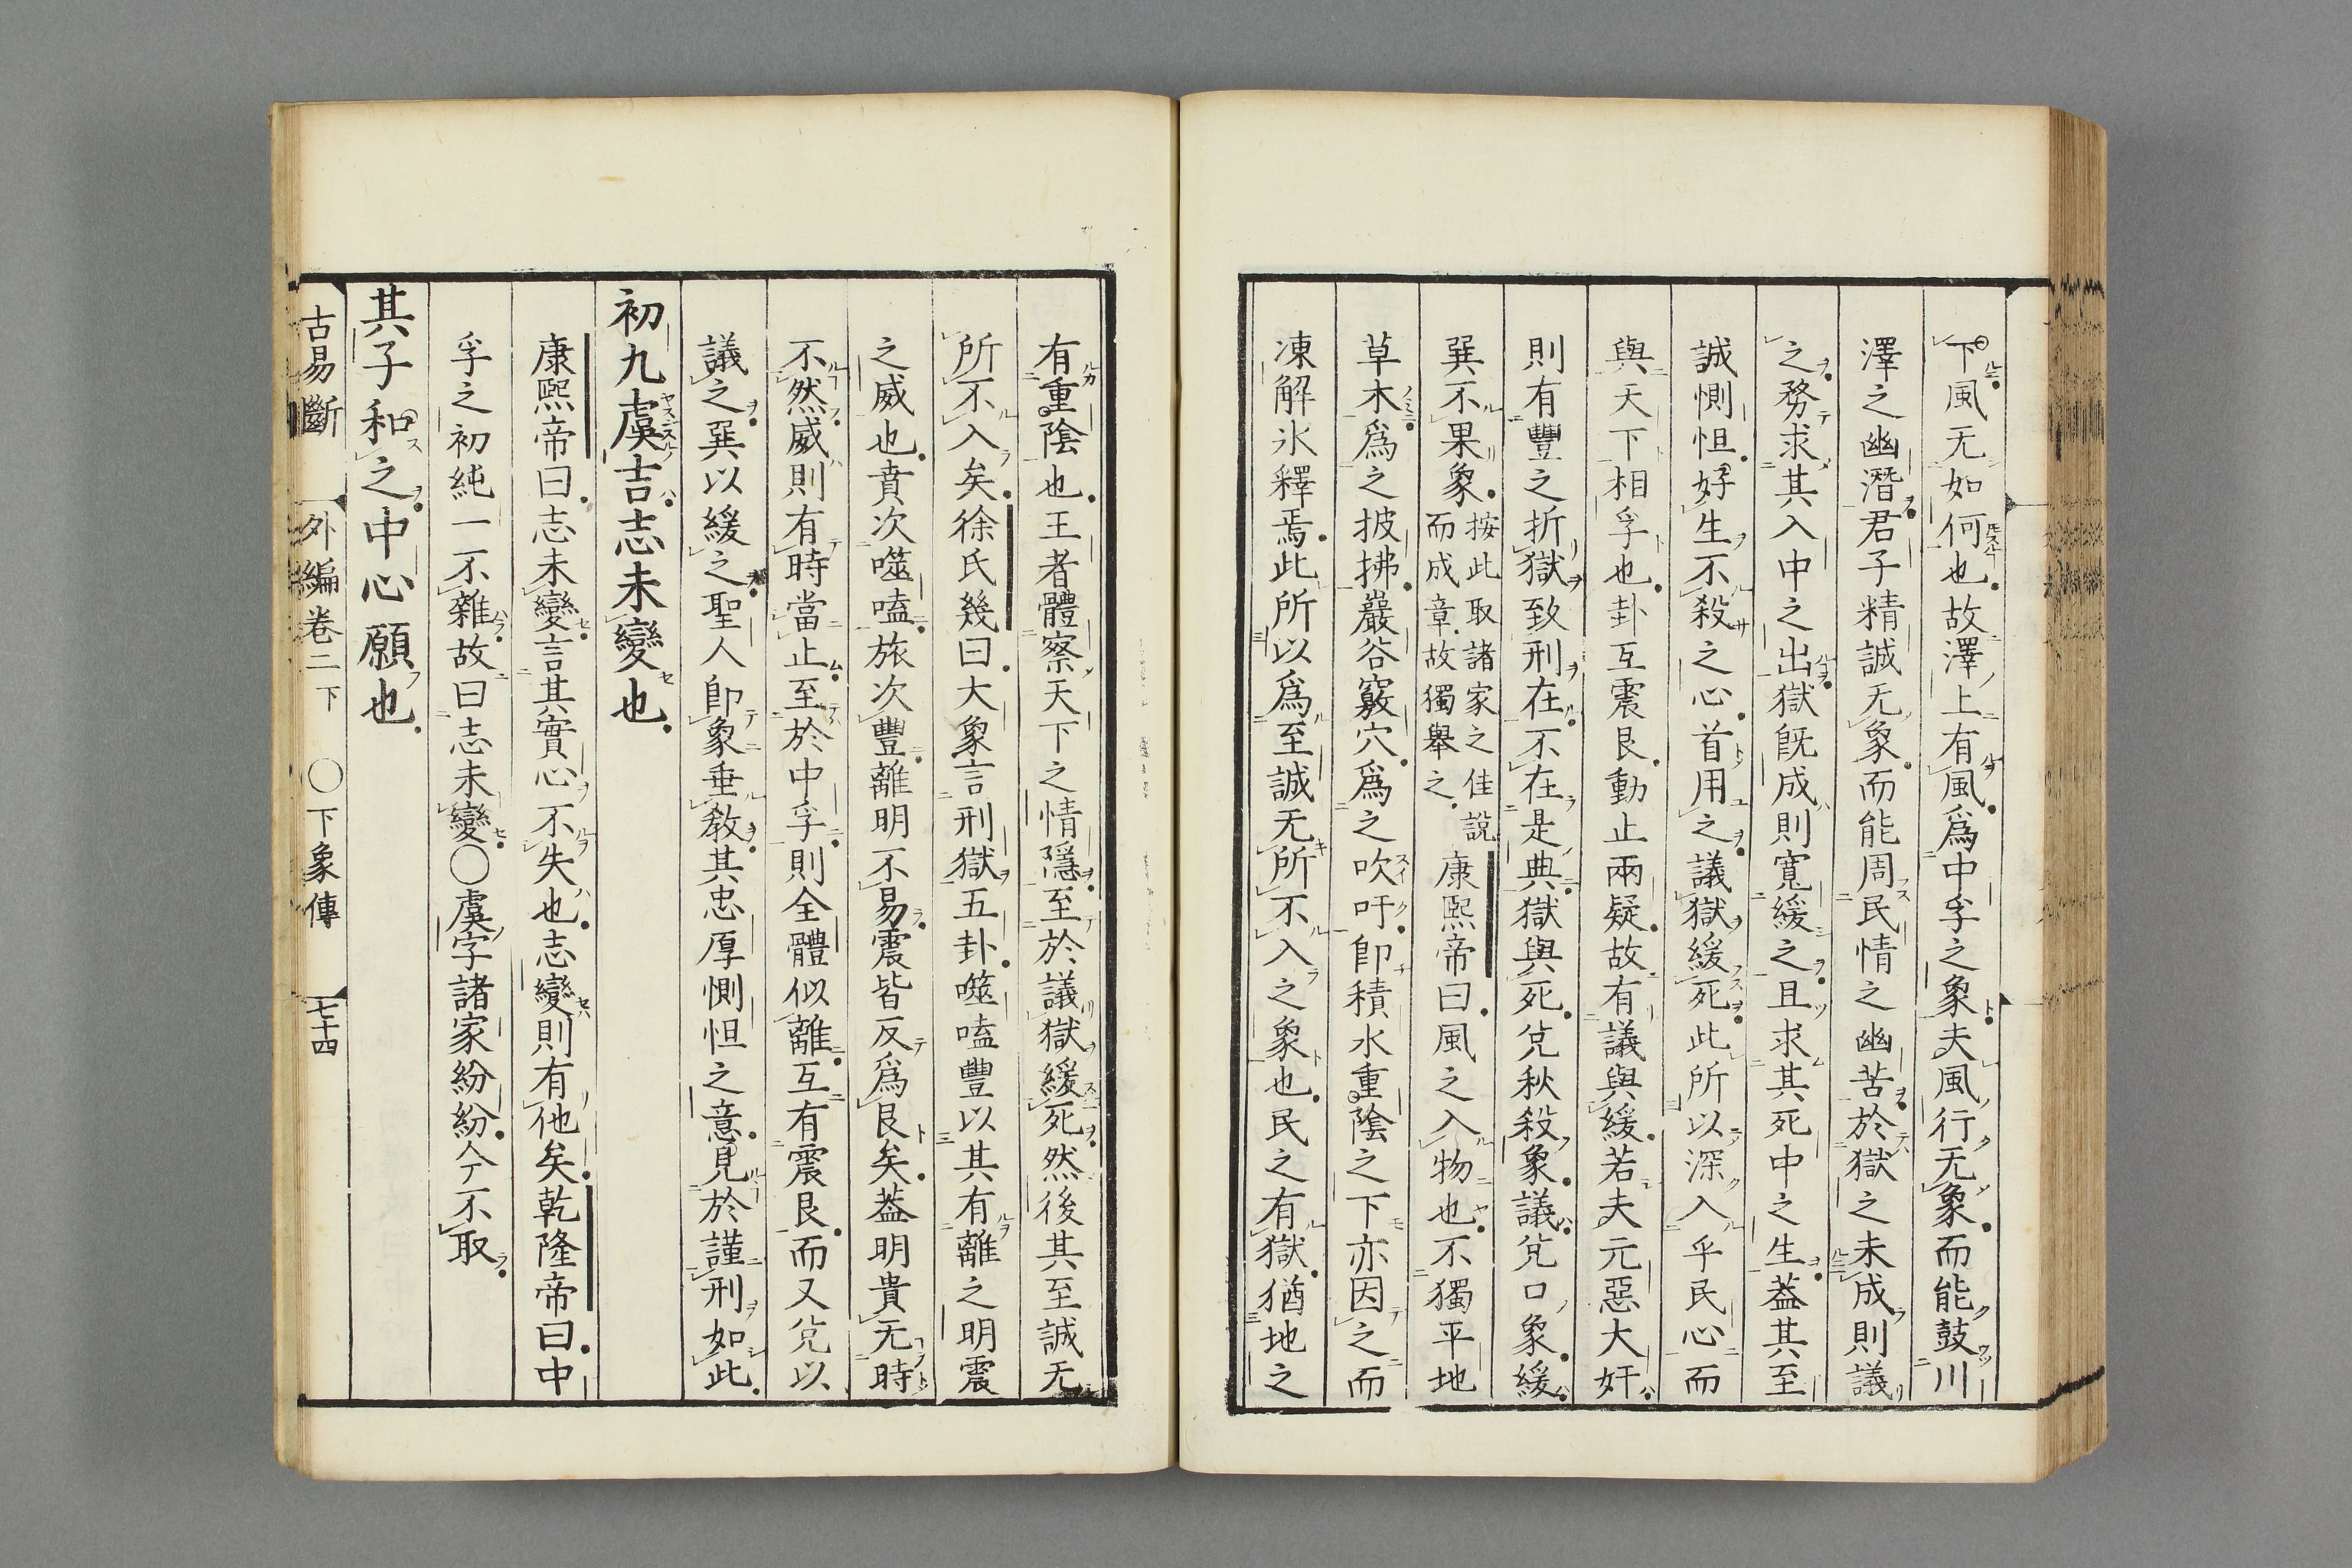 下風无如何也故澤上有風爲中孚之象夫風行无象而能鼓川
澤之幽潛君子精誠无象而能周民情之幽苦於獄之未成則議
之務求其入中之出獄旣成則寬緩之且求其死中之生葢其至
誠惻怛好生不殺之心首用之議獄緩死此所以深入乎民心而
與天下相孚也卦互震艮動止兩疑故有議與緩若夫元惡大奸
則有豐之折獄致刑在不在是典獄與死兌秋殺象議兌口象緩
巽不果象按此取諸家之佳說而成章故獨舉之康熙帝曰風之入物也不獨平地
草木爲之披拂巖谷竅穴爲之吹吁卽積水重陰之下亦因之而
凍解氷釋焉此所以爲至誠无所不入之象也民之有獄猶地之
有重陰也王者體察天下之情隱至於議獄緩死然後其至誠无
所不入矣徐氏幾曰大象言刑獄五卦噬嗑豐以其有離之明震
之威也賁次噬嗑旅次豐離明不易震皆反爲艮矣葢明貴无時
不然威則有時當止至於中孚則全體似離互有震艮而又兌以
議之巽以緩之聖人卽象垂敎其忠厚惻怛之意見於謹刑如此
初九虞吉志未變也
康熙帝曰志未變言其實心不失也志變則有他矣乾隆帝曰中
孚之初純一不雜故曰志未變○虞字諸家紛紛今不取
其子和之中心願也
古易斷 外編卷二下 ○下象傳 七十四